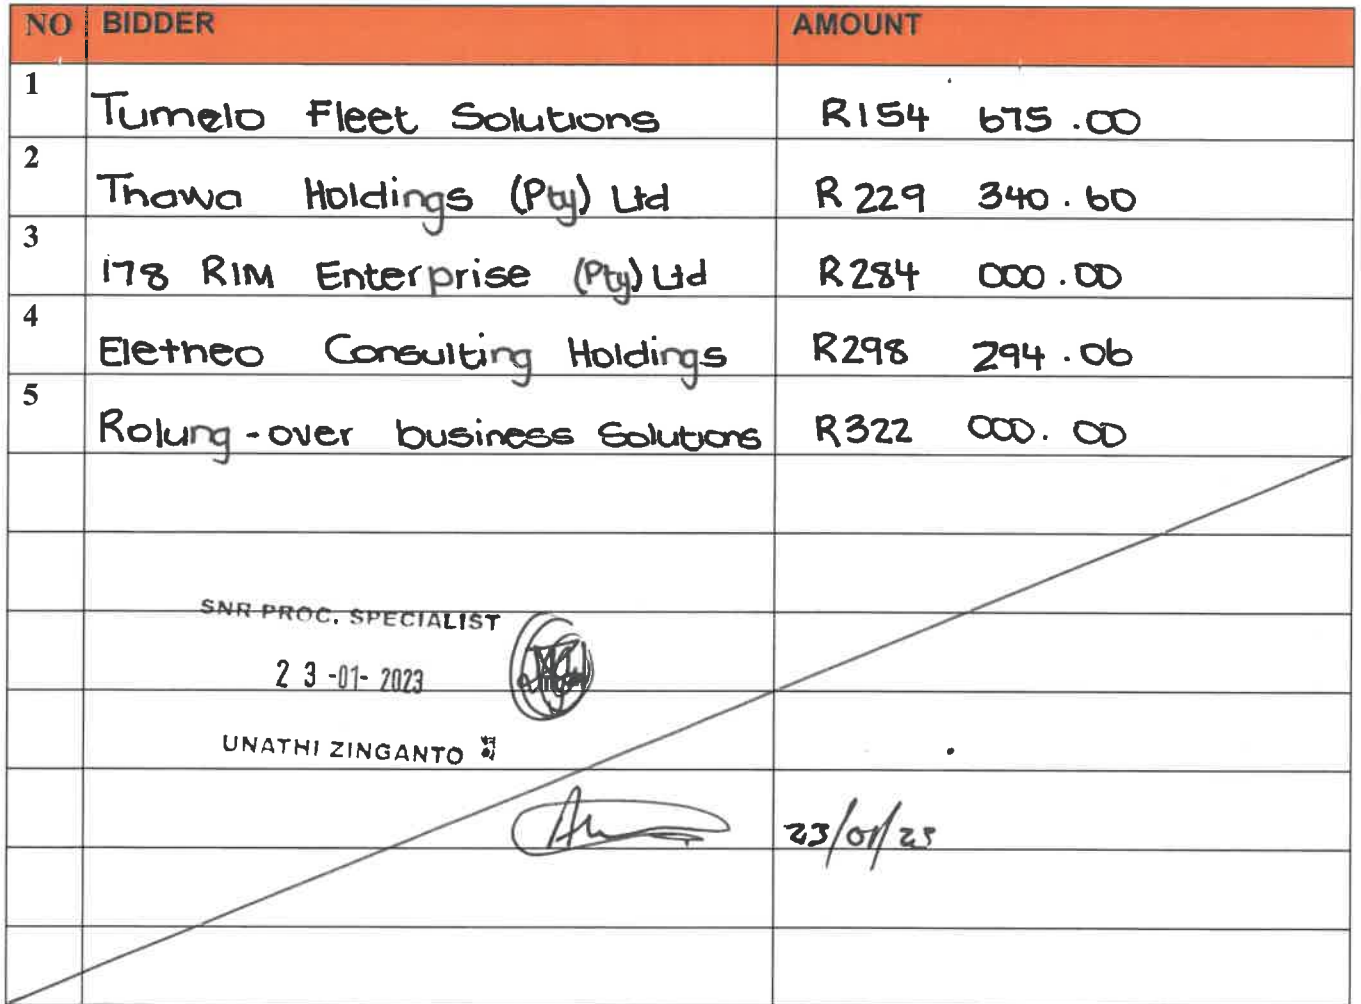 NO BIDDER AMOUNT
1 Tumelo Fleet Solutions R154 675.00
2 Thawa Holdings (Pty) Ltd R 229 340.60
3 178 RIM Enterprise (Pty) Ltd R284 000.00
4 Eletheo Consulting Holdings R298 294.06
5 Rolling-over business Solutions R322 000.00
SNR PROC. SPECIALIST
23-01-2023
UNATHI ZINGANTO
23/01/23